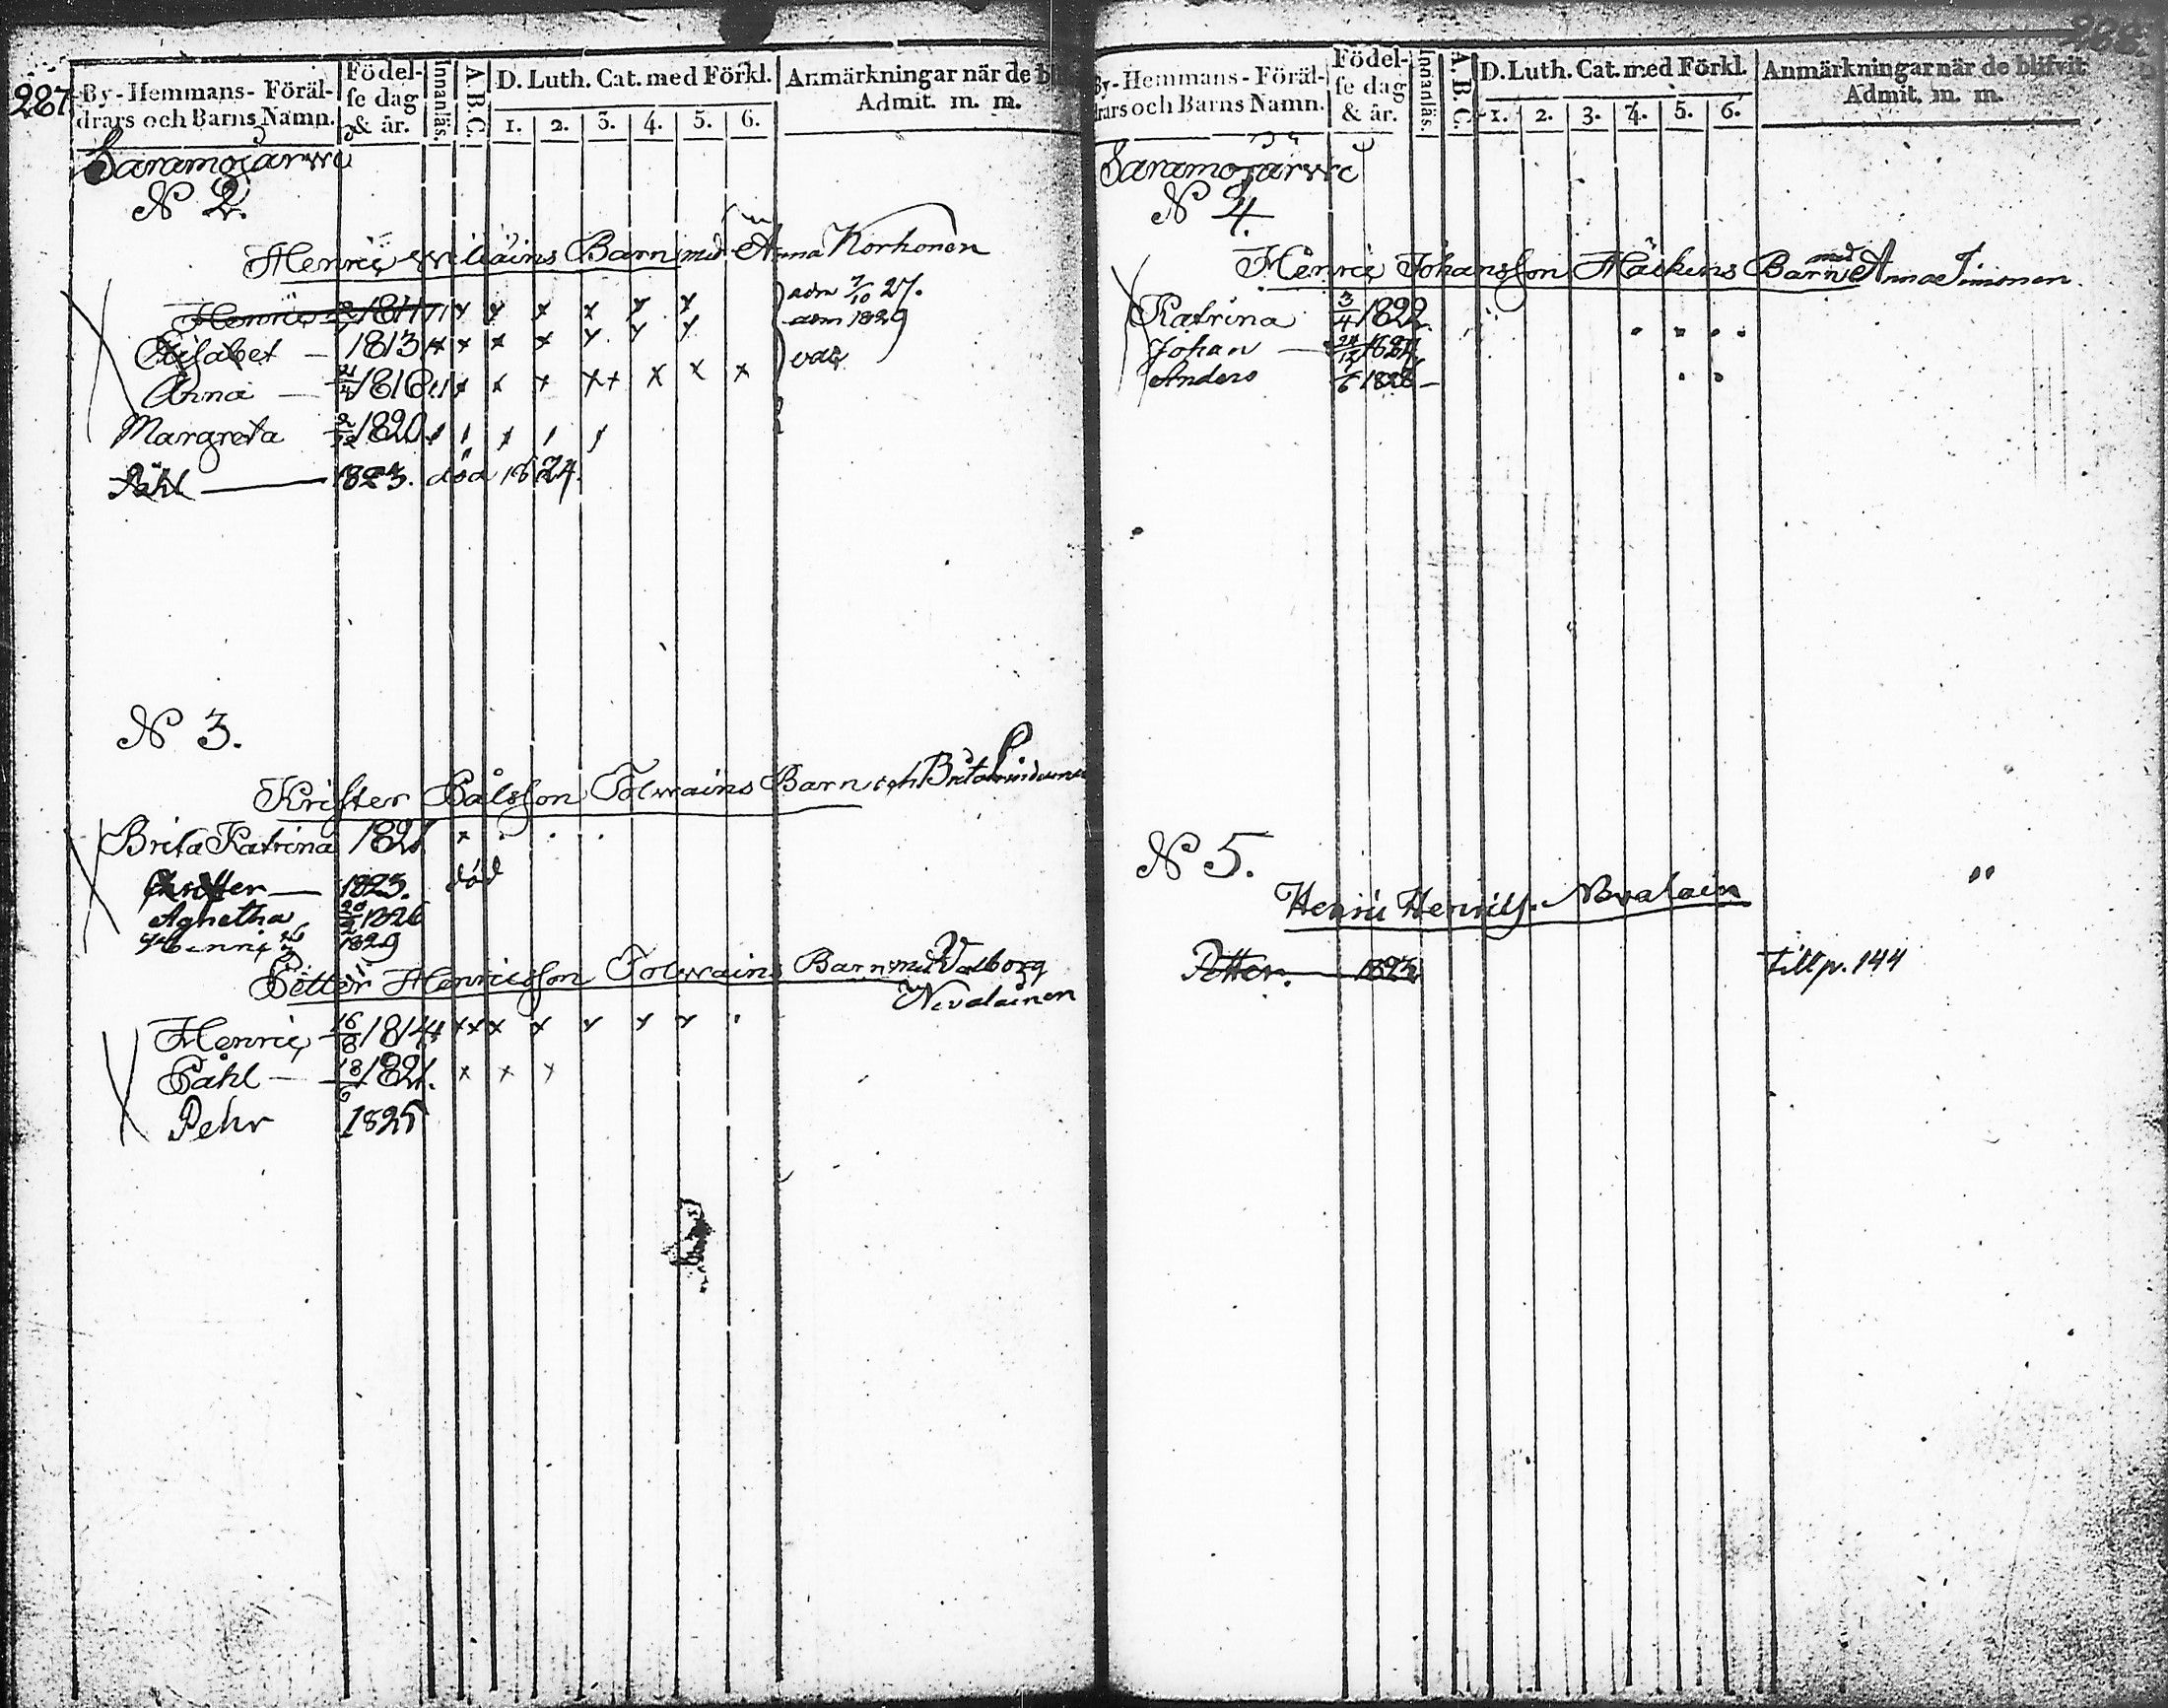 287
By-Hemmans-Föräl-
drars och Barns Namn.
Födel-
se dag
& år.
Innanläs.
A.B.C.
D. Luth. Cat. med Förkl.
1. 2. 3. 4. 5. 6.
Anmärkningar när de
Admit. m. m.
Saramojärwi
N 2.
Henric Barn med Anna Korhonen
Henric 1811 x x x x x x adm 7/10 27.
Elisabet 1813 x x x x y y y adm 1829
Anna 1816 x x x x x x x x vac
Margreta 1820
Påhl 1823. död 1824.
N 3.
Krister Pålsson Tolwains Barn och Brita
Brita Katrina 1821 x
Christer 1823. död
Agnetha 1826
Henric 1829
Petter Henricsson Tolwains Barn med Valborg
Nevalainen
Henric 16/8 1814 x x x x y y y
Påhl 18/6 1821. x x x
Pehr 1825
288
By-Hemmans-Föräl-
drars och Barns Namn.
Födel-
se dag
& år.
Innanläs.
A.B.C.
D. Luth. Cat. med Förkl.
1. 2. 3. 4. 5. 6.
Anmärkningar när de blifvit
Admit. m. m.
Saramojärwi
N 4.
Henric Johansson Barn med Anna Timonen.
Katrina 3/4 1822
Johan
Anders 1828
N 5.
Henric Henricss. Novalain
Petter. 1823 Till p. 144